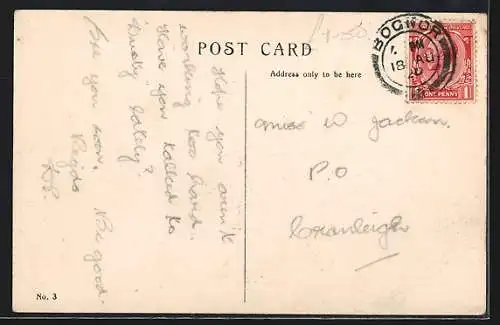 £1-50
POST CARD
BOGNOR
18 AU
ONE PENNY
1
Address only to be here
Hope you aren't
working too hard.
Have you talked to
Dusky lately?
Be good.
See you soon.
Miss W Jackson.
P.O
Cranleigh
No. 3